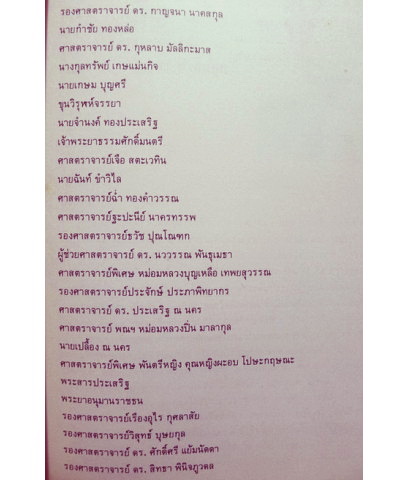 รองศาสตราจารย์ ดร. กาญจนา นาคสกุล
นายกำชัย ทองหล่อ
ศาสตราจารย์ ดร. กุหลาบ มัลลิกะมาส
นางกุลทรัพย์ เกษแม่นกิจ
นายเกษม บุญศรี
ขุนวิรุฬห์จรรยา
นายจำนงค์ ทองประเสริฐ
เจ้าพระยาธรรมศักดิ์มนตรี
ศาสตราจารย์เจือ สตะเวทิน
นายฉันท์ ขำวิไล
ศาสตราจารย์ฉ่ำ ทองคำวรรณ
ศาสตราจารย์ฐะปะนีย์ นาครทรรพ
รองศาสตราจารย์ธวัช ปุณโณทก
ผู้ช่วยศาสตราจารย์ ดร. นววรรณ พันธุเมธา
ศาสตราจารย์พิเศษ หม่อมหลวงบุญเหลือ เทพยสุวรรณ
รองศาสตราจารย์ประจักษ์ ประภาพิทยากร
ศาสตราจารย์ ดร. ประเสริฐ ณ นคร
ศาสตราจารย์ พณฯ หม่อมหลวงปิ่น มาลากุล
นายเปลื้อง ณ นคร
ศาสตราจารย์พิเศษ พันตรีหญิง คุณหญิงผะอบ โปษะกฤษณะ
พระสารประเสริฐ
พระยาอนุมานราชธน
รองศาสตราจารย์เรืองอุไร กุศลาสัย
รองศาสตราจารย์วิสุทธ์ บุษยกุล
รองศาสตราจารย์ ดร. ศักดิ์ศรี แย้มนัดดา
รองศาสตราจารย์ ดร. สิทธา พินิจภูวดล